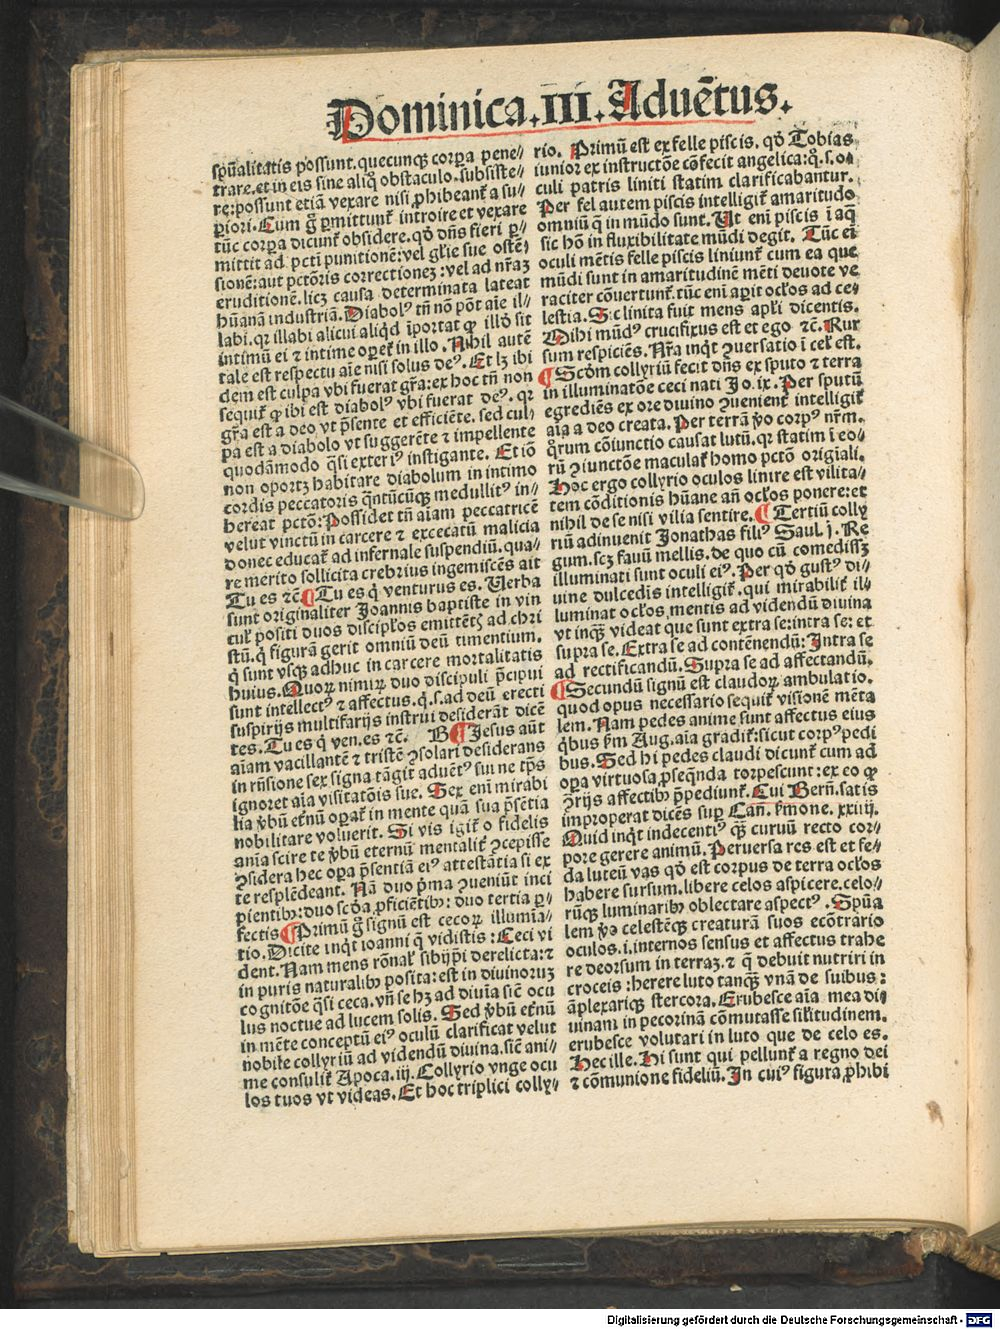 Dominica.III.Aduẽtus.
spũalitatis possunt.quecunqꝫ corꝑa pene⸗
trare.et in eis sine aliq̊ obstaculo.subsiste⸗
re:possunt etiã vexare nisi ꝓhibeant᷑ a su⸗
ꝑiori.Cum g̊ ꝑmittunt᷑ introire et vexare
tũc corꝑa dicunt᷑ obsidere.qd̛ dñs fieri ꝑ⸗
mittit ad pctĩ punitionẽ:vel gl̃ie sue ostẽ⸗
sionẽ:aut pctõris correctionẽꝫ:vel ad nr̃aꝫ
eruditionẽ.licꝫ causa determinata lateat
hũanã industriã.Diabolꝰ tñ nõ põt aĩe il⸗
labi.qꝛ illabi alicui aliqd̛ ĩportat ꝙ illd̛ sit
intimũ ei ⁊ intime oꝑet᷑ in illo.Nihil autẽ
tale est respectu aĩe nisi solus deꝰ.Et lꝫ ibi
dem est culpa vbi fuerat gr̃a:ex hoc tñ non
sequit᷑ ꝙ ibi est diabolꝰ vbi fuerat deꝰ.qꝛ
gr̃a est a deo vt p̃sente et efficiẽte.sed cul⸗
pa est a diabolo vt suggerẽte ⁊ impellente
quodãmodo q̃si exteriꝰ instigante. Et iõ
non oportꝫ habitare diabolum in intimo
cordis peccatoris q̃ntũcũqꝫ medullitꝰ in⸗
hereat pctõ:Possidet tñ aĩam peccatricẽ
velut vinctũ in carcere ⁊ excecatũ malicia
donec educat᷑ ad infernale suspendiũ.qua⸗
re merito sollicita crebrius ingemiscẽs ait
Tu es ⁊c̃.¶Tu es q̇ venturus es. Uerba
sunt originaliter Joannis baptiste in vin
cul᷑ positi duos discipl̃os emittẽtꝭ ad chri
stũ.q̇ figurã gerit omniũ deũ timentium.
q̇ sunt vsqꝫ adhuc in carcere mortalitatis
huius.Quoꝝ nimiꝝ duo discipuli p̃cipui
sunt intellectꝰ ⁊ affectus.q̇.s.ad deũ erecti
suspirijs multifarijs instrui desiderãt dicẽ
tes.Tu es q̇ ven.es ⁊c̃. B ¶Jesus aũt
aĩam vacillantẽ ⁊ tristẽ ꝯsolari desiderans
in rñsione sex signa tãgit aduẽtꝰ sui ne tp̃s
ignoret aĩa visitatõis sue. Sex enĩ mirabi
lia v̛bũ et̛nũ oꝑat᷑ in mente quã sua p̃sẽtia
nobilitare voluerit. Si vis igit᷑ o fidelis
anĩa scire te v̛bũ eternũ mentalit᷑ ꝯcepisse
ꝯsidera hec oꝑa p̃sentiã eiꝰ attestãtia si ex
te resplẽdeant. Nã duo p̃ma ꝯueniũt inci
pientibꝫ:duo scd̛a ꝓficiẽtibꝫ:duo tertia ꝑ⸗
fectis¶Primũ g̊ signũ est cecoꝝ illumĩa⸗
tio.Dicite inq̇t ioanni q̃ vidistis:Ceci vi
dent.Nam mens rõnal᷑ sibijp̃i derelicta:⁊
in puris naturalibꝫ posita:est in diuinoruꝫ
cognitõe q̃si ceca.vñ se hꝫ ad diuĩa sic̃ ocu
lus noctue ad lucem solis. Sed v̛bũ et̛nũ
in mẽte conceptũ eiꝰ oculũ clarificat velut
nobile collyriũ ad videndũ diuina.sic̃ ani⸗
me consulit᷑ Apoca.iij.Collyrio vnge ocu
los tuos vt videas.Et hoc triplici colly⸗
rio. Primũ est ex felle piscis.qd̛ Tobias
iunior ex instructõe cõfecit angelica:q̊.s.o⸗
culi patris liniti statim clarificabantur.
Per fel autem piscis intelligit᷑ amaritudo
omniũ q̃ in mũdo sunt. Ut enĩ piscis ĩ aq̃
sic hõ in fluxibilitate mũdi degit. Tũc eĩ
oculi mẽtis felle piscis liniunt᷑ cum ea que
mũdi sunt in amaritudinẽ mẽti deuote ve
raciter cõuertunt᷑.tũc enĩ aꝑit ocl̃os ad ce⸗
lestia.Sic linita fuit mens apl̃i dicentis.
Mihi mũdꝰ crucifixus est et ego ⁊c̃. Rur
sum respiciẽs. Nr̃a inq̇t ꝯuersatio ĩ cel᷑ est.
¶Scd̛m collyriũ fecit dñs ex sputo ⁊ terra
in illuminatõe ceci nati Jo.ix.Per sputũ
egrediẽs ex ore diuino ꝯuenient᷑ intelligit᷑
aĩa a deo creata.Per terrã v̛o corpꝰ nr̃m.
q̊rum cõiunctio causat lutũ.qꝛ statim ĩ eo⸗
rũ ꝯiunctõe maculat᷑ homo pctõ origiali.
Hoc ergo collyrio oculos linire est vilita⸗
tem cõditionis hũane añ ocl̃os ponere:et
nihil de se nisi vilia sentire.¶Tertiũ colly
riũ adinuenit Jonathas filiꝰ Saul.j.Re
gum.scꝫ fauũ mellis.de quo cũ comedissꝫ
illuminati sunt oculi eiꝰ.Per qd̛ gustꝰ di⸗
uine dulcedis intelligit᷑.qui mirabilit᷑ il⸗
luminat ocl̃os mentis ad videndũ diuina
vt inqꝫ videat que sunt extra se:intra se: et
supra se.Extra se ad contẽnendũ: Intra se
ad rectificandũ.Supra se ad affectandũ.
¶Secundũ signũ est claudoꝝ ambulatio.
quod opus necessario sequit᷑ visionẽ mẽta
lem.Nam pedes anime sunt affectus eius
q̇bus ẜm Aug.aĩa gradit᷑:sicut corpꝰ pedi
bus.Sed hi pedes claudi dicunt᷑ cum ad
oꝑa virtuosa ꝓseq̃nda torpescunt:ex eo ꝙ
ꝯrijs affectibꝫ p̃pediunt᷑.Cui Berñ.satis
improperat dicẽs suꝑ Cañ.ẜmone.xxiiij.
Quid inq̇t indecentiꝰ qꝫ̃ curuũ recto cor⸗
pore gerere animũ.Peruersa res est et fe⸗
da luteũ vas qd̛ est corpus de terra ocl̃os
habere sursum.libere celos aspicere.celo⸗
rũqꝫ luminaribꝫ oblectare aspectꝰ.Spũa
lem v̛o celestẽqꝫ creaturã suos ecõtrario
oculos.i.internos sensus et affectus trahe
re deorsum in terraꝫ.⁊ q̃ debuit nutriri in
croceis:herere luto tanqꝫ̃ vnã de suibus:
ãplexariqꝫ stercora.Erubesce aĩa mea di⸗
uinam in pecorinã cõmutasse sil̃itudinem.
erubesce volutari in luto que de celo es.
Hec ille.Hi sunt qui pellunt᷑ a regno dei
⁊ cõmunione fideliũ.In cuiꝰ figura ꝓhibi
Digitalisierung gefördert durch die Deutsche Forschungsgemeinschaft - DFG